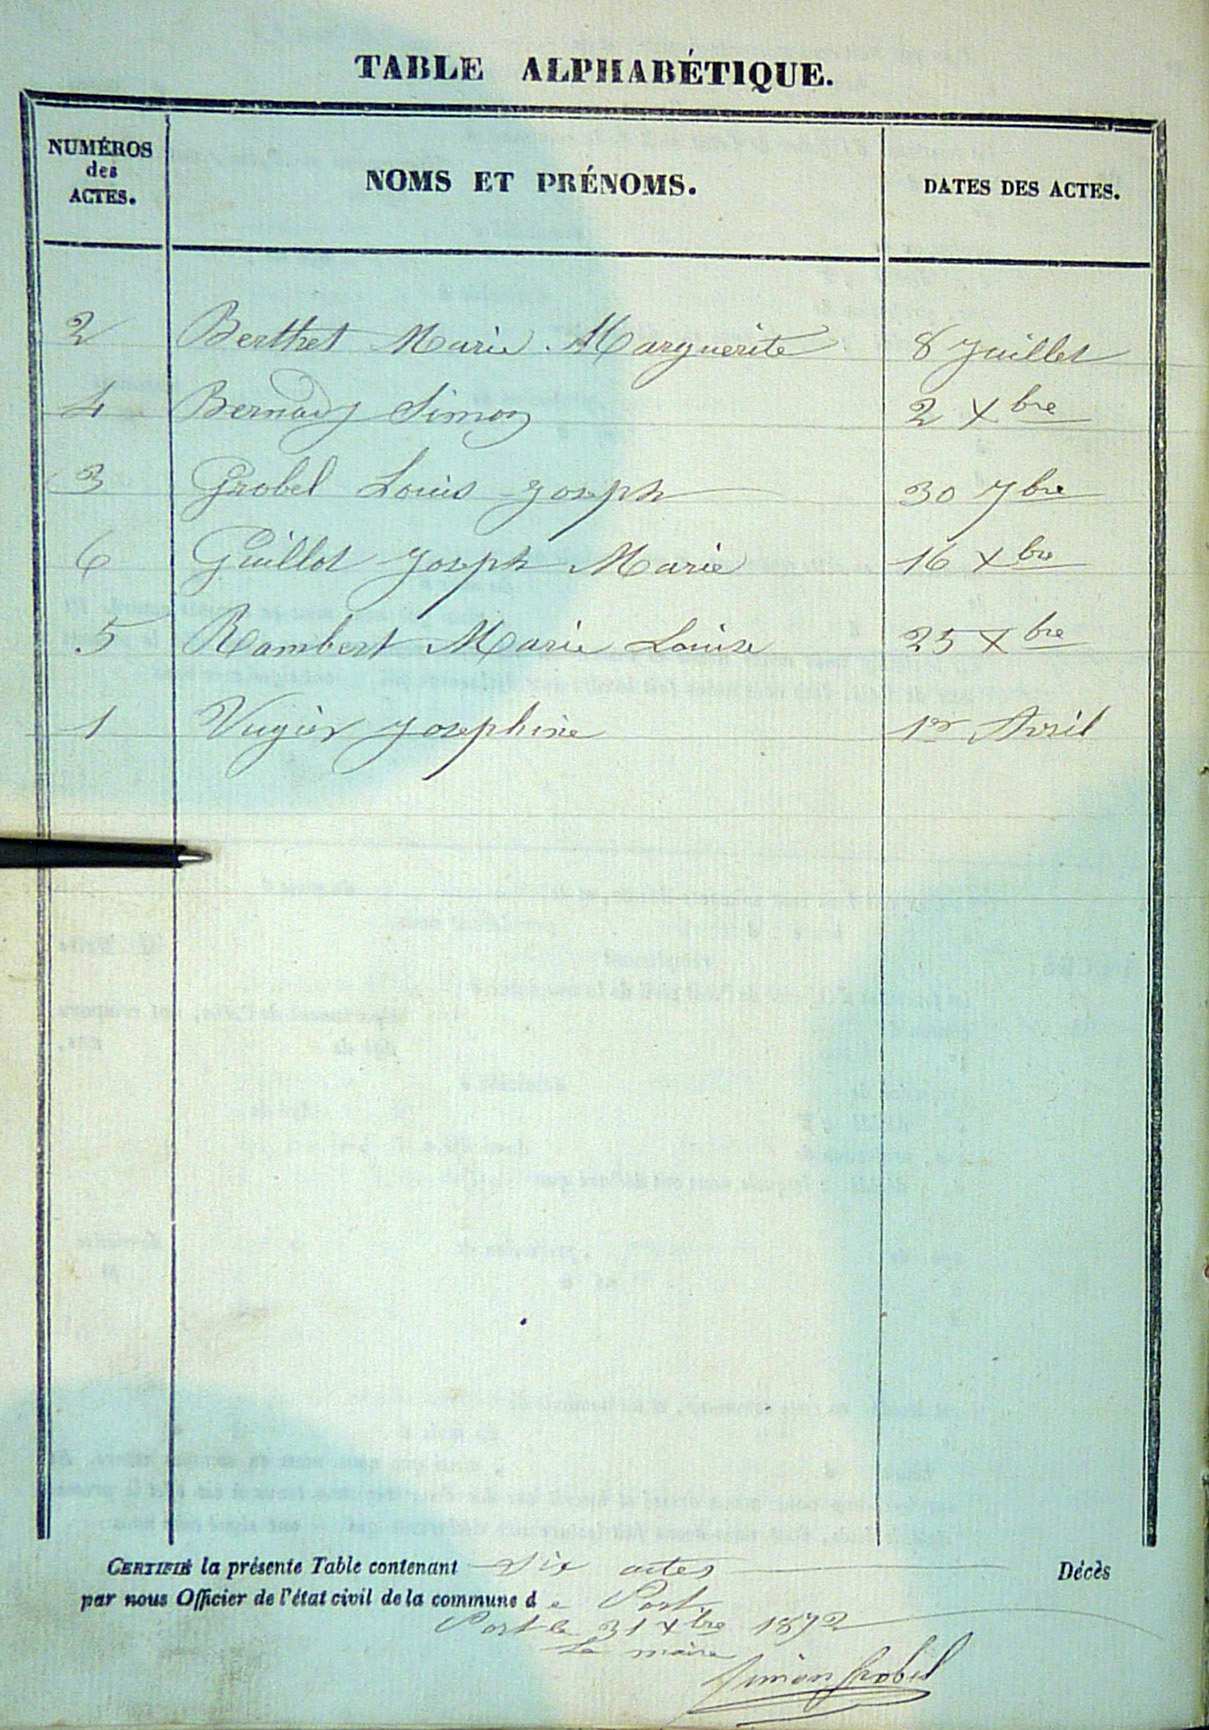 TABLE ALPHABÉTIQUE.
NUMÉROS
des
ACTES.
NOMS ET PRÉNOMS.
DATES DES ACTES.
2 Berthet Marie Marguerite 8 Juillet
4 Bernady Simon 2 Xbre
3 Grobel Louis Joseph 30 7bre
6 Guillot Joseph Marie 16 Xbre
5 Rambert Marie Louise 25 Xbre
1 Josephine 1er Avril
CERTIFIÉ la présente Table contenant six actes Décès
par nous Officier de l'état civil de la commune de Port
Port le 31 Xbre 1872
Le maire
Simon Grobel